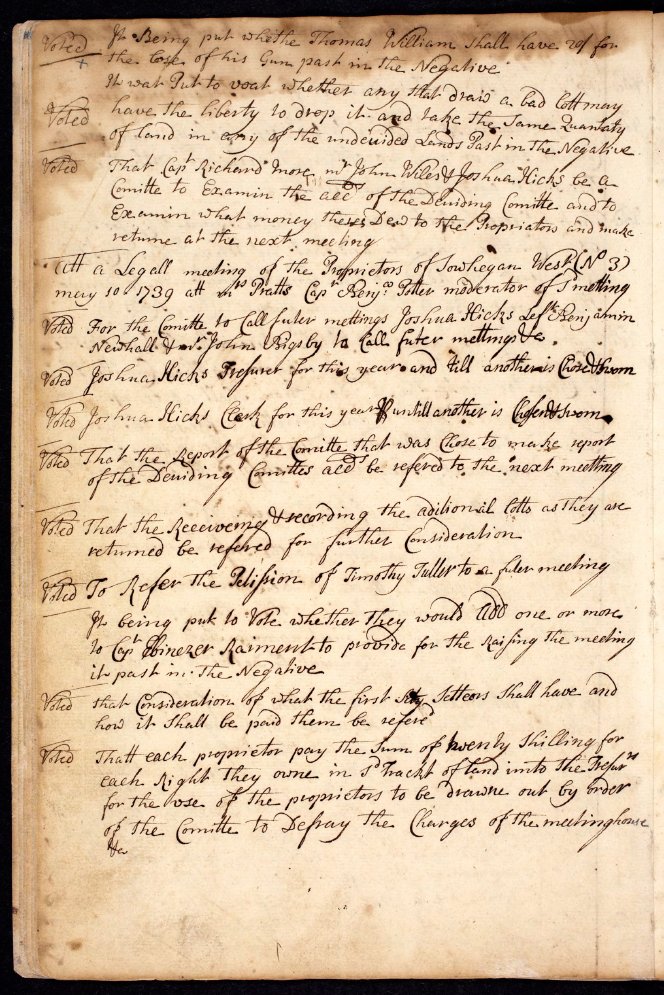 Voted It Being put whethe Thomas William Shall have 20/ for
the lose of his Gun past in the Negative
It wat Put to voat whether any that draw a bad lott may
Voted have the liberty to drop it and take the Same Quantaty
of land in any of the undevided Lands Past in the Negative
Voted That Capt Richard More mr John Wiles & Joshua Hicks be a
Comitte to Examin the accts of the Deviding Comitte and to
Examin what money theres Dew to the Propriators and make
returne at the next meeting
Att a Legall meeting of the Proprietors of Sowhegan West (No 3)
may 10 1739 att mrs Pratts Capt Benja Potter moderator of sd metting
Voted For the Comitte to Call futer mettings Joshua Hicks Left Benjamin
Newhall & mr John Bigsby to Call futer mettings &c
Voted Joshua Hicks Tresurer for this year and till another is Chose & Sworn
Voted Joshua Hicks Clark for this year & untill another is Chosen & Sworn
Voted That the Report of the Comitte that was Chose to make report
of the Deviding Comittes accts be refered to the next meetting
Voted That the Receiveing & recording the aditional Lotts as They are
returned be refered for further Consideration
Voted To Refer the Petission of Timothy Fuller to a futer meeting
It being put to Vote whether They would add one or more
to Capt Ebinezer Raiment to provide for the Raising the meeting
it past in The Negative
Voted that Consideration of what the first Settlors Shall have and
how it Shall be paid them be refered
Voted Thatt each proprietor pay the Sum of twenty Shilling for
each Right they owne in sd Trackt of land into the Tresury
for the use of the proprietors to be drawne out by order
of the Comitte to Defray the Charges of the meetinghouse
&c